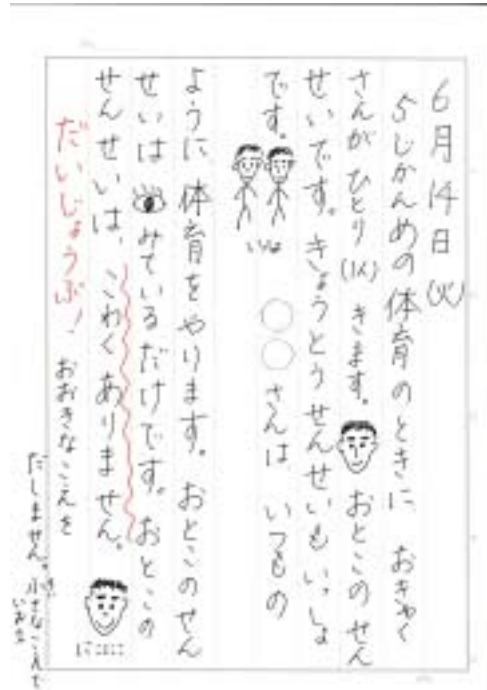 6月14日(火)
5じかんめの体育のときに おきゃく
さんが ひとり(1人) きます。 おとこのせん
せいです。きょうとうせんせいもいっしょ
です。
いっしょ
○○さんは いつもの
ように 体育をやります。 おとこのせん
せいは みているだけです。おとこの
せんせいは、こわくありません。
にこにこ
だいじょうぶ! おおきなこえを
だしません。小さなこえで